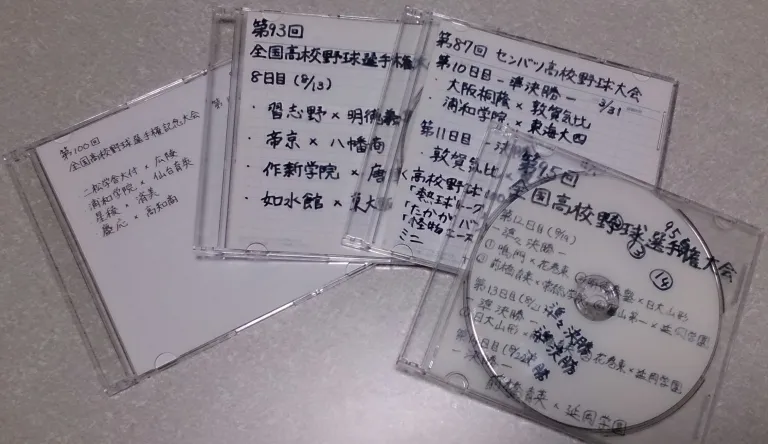 第100回
全国高校野球選手権記念大会
二松学舎大付 × 広陵
浦和学院 × 仙台育英
星稜 × 済美
慶応 × 高知商
第93回
全国高校野球選手権大
8日目 (8/13)
・習志野 × 明徳義
・帝京 × 八幡商
・作新学院 × 唐
・如水館 × 東大
第87回 センバツ高校野球大会
第10日目 -準決勝- 3/31
・大阪桐蔭 × 敦賀気比
・浦和学院 × 東海大四
第11日目 -決
・敦賀気比 ×
高校野球
「熱球
「たかが
「怪物
ミニ
第95回
全国高校野球選手権大会
95
⑬
⑭
第12日目 (8/19)
-準々決勝-
①鳴門 × 花巻東
日大山形
②前橋育英 × 常総学院
富山第一 × 延岡学園
第13日目
-準決勝-
日大山形
花巻東 × 延岡学園
準々決勝
準決勝
決勝
-決勝-
前橋育英 × 延岡学園